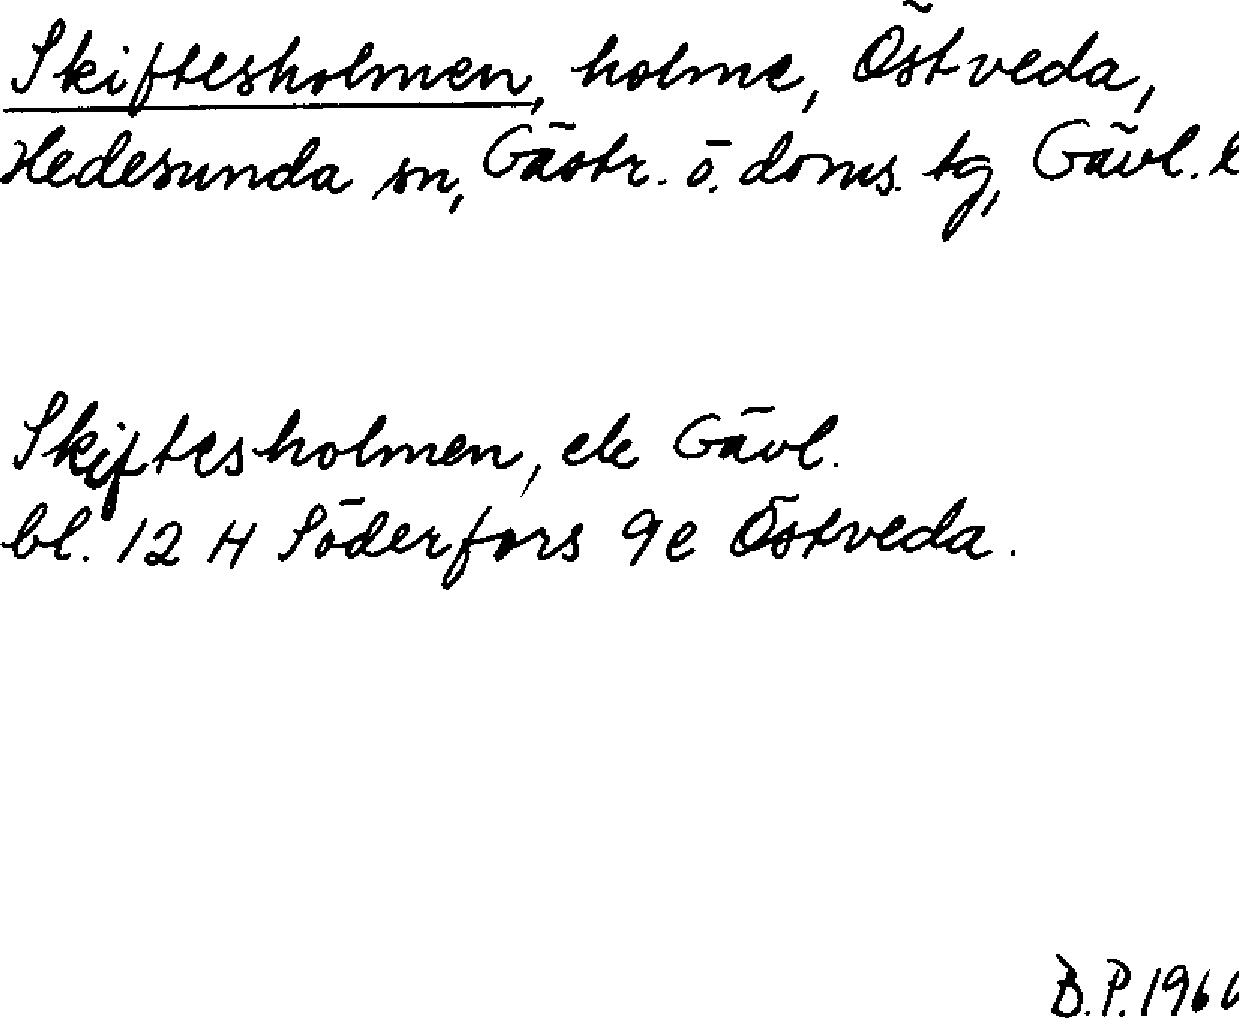 Skiftesholmen, holme, Östveda,
Hedesunda sn, Gästr. ö. doms. tg, Gävl. l
Skiftesholmen, ek Gävl.
bl. 12 H Söderfors 9e Östveda.
B.P. 196